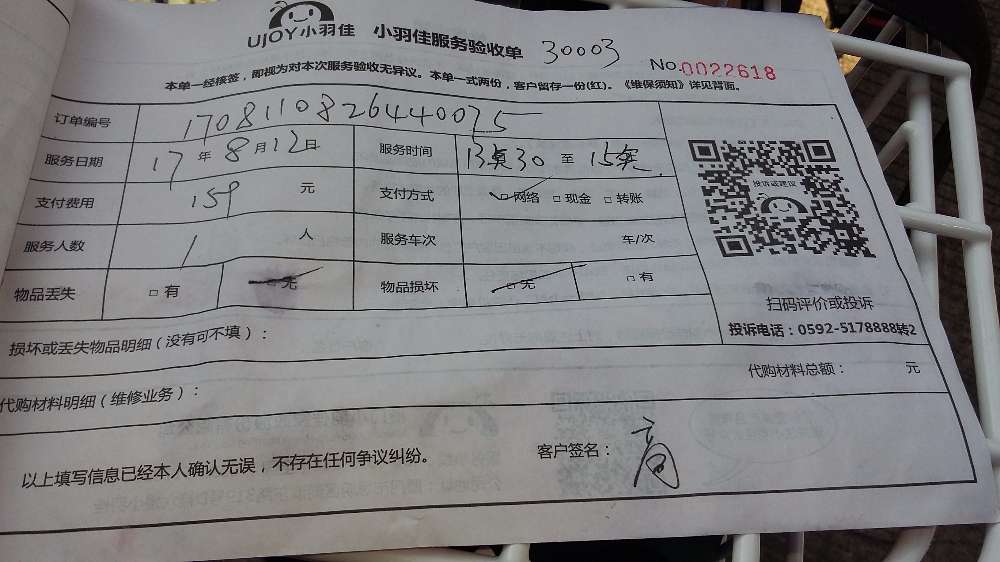 UJOY小羽佳 小羽佳服务验收单 30003 No.0022618
本单一经核签，即视为对本次服务验收无异议。本单一式两份，客户留存一份(红)。《维保须知》详见背面。
订单编号 1708110826440075
服务日期 17年8月12日 服务时间 13点30至15点
支付费用 159 元 支付方式 □网络 □现金 □转账
服务人数 1 人 服务车次 车/次
物品丢失 □有 □无 物品损坏 □无 □有
投诉或建议
扫码评价或投诉
投诉电话：0592-5178888转2
损坏或丢失物品明细（没有可不填）：
代购材料明细（维修业务）： 代购材料总额： 元
以上填写信息已经本人确认无误，不存在任何争议纠纷。 客户签名：高